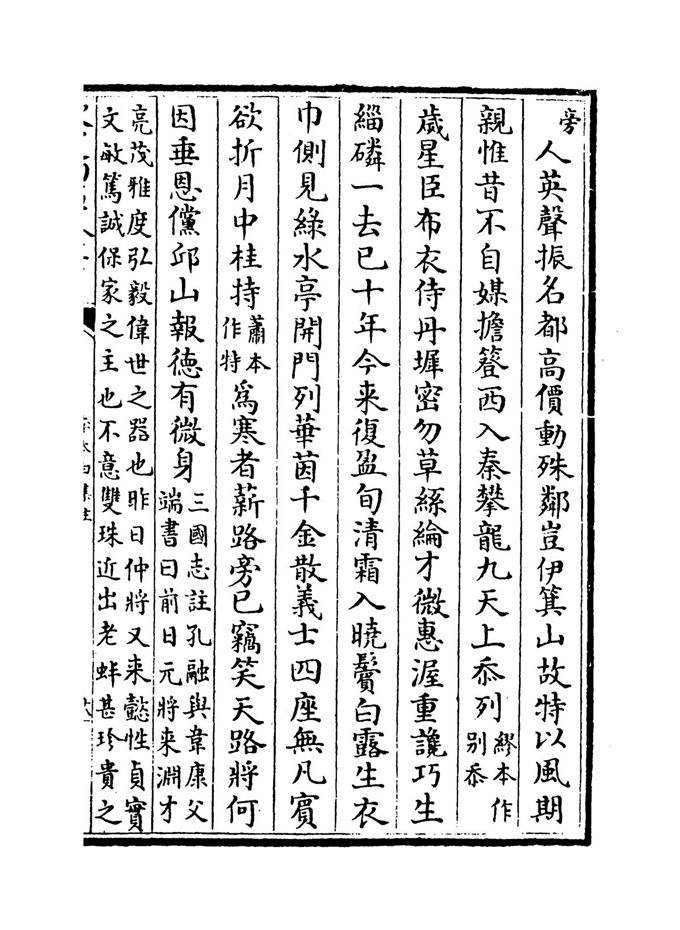 旁人英聲振名都高價動殊鄰豈伊箕山故特以風期
親惟昔不自媒擔簦西入秦攀龍九天上忝列繆本作别忝
歲星臣布衣侍丹墀密勿草絲綸才微惠渥重讒巧生
緇磷一去已十年今来復盈旬清霜入曉鬢白露生衣
巾側見緑水亭開門列華茵千金散義士四座無凡賓
欲折月中桂持蕭本作特為寒者薪路旁已竊笑天路將何
因垂恩儻邱山報德有微身三國志註孔融與韋康父端書曰前日元將来淵才
亮茂雅度弘毅偉世之器也昨日仲將又来懿性貞實
文敏篤誠保家之主也不意雙珠近出老蚌甚珍貴之
李太白集注